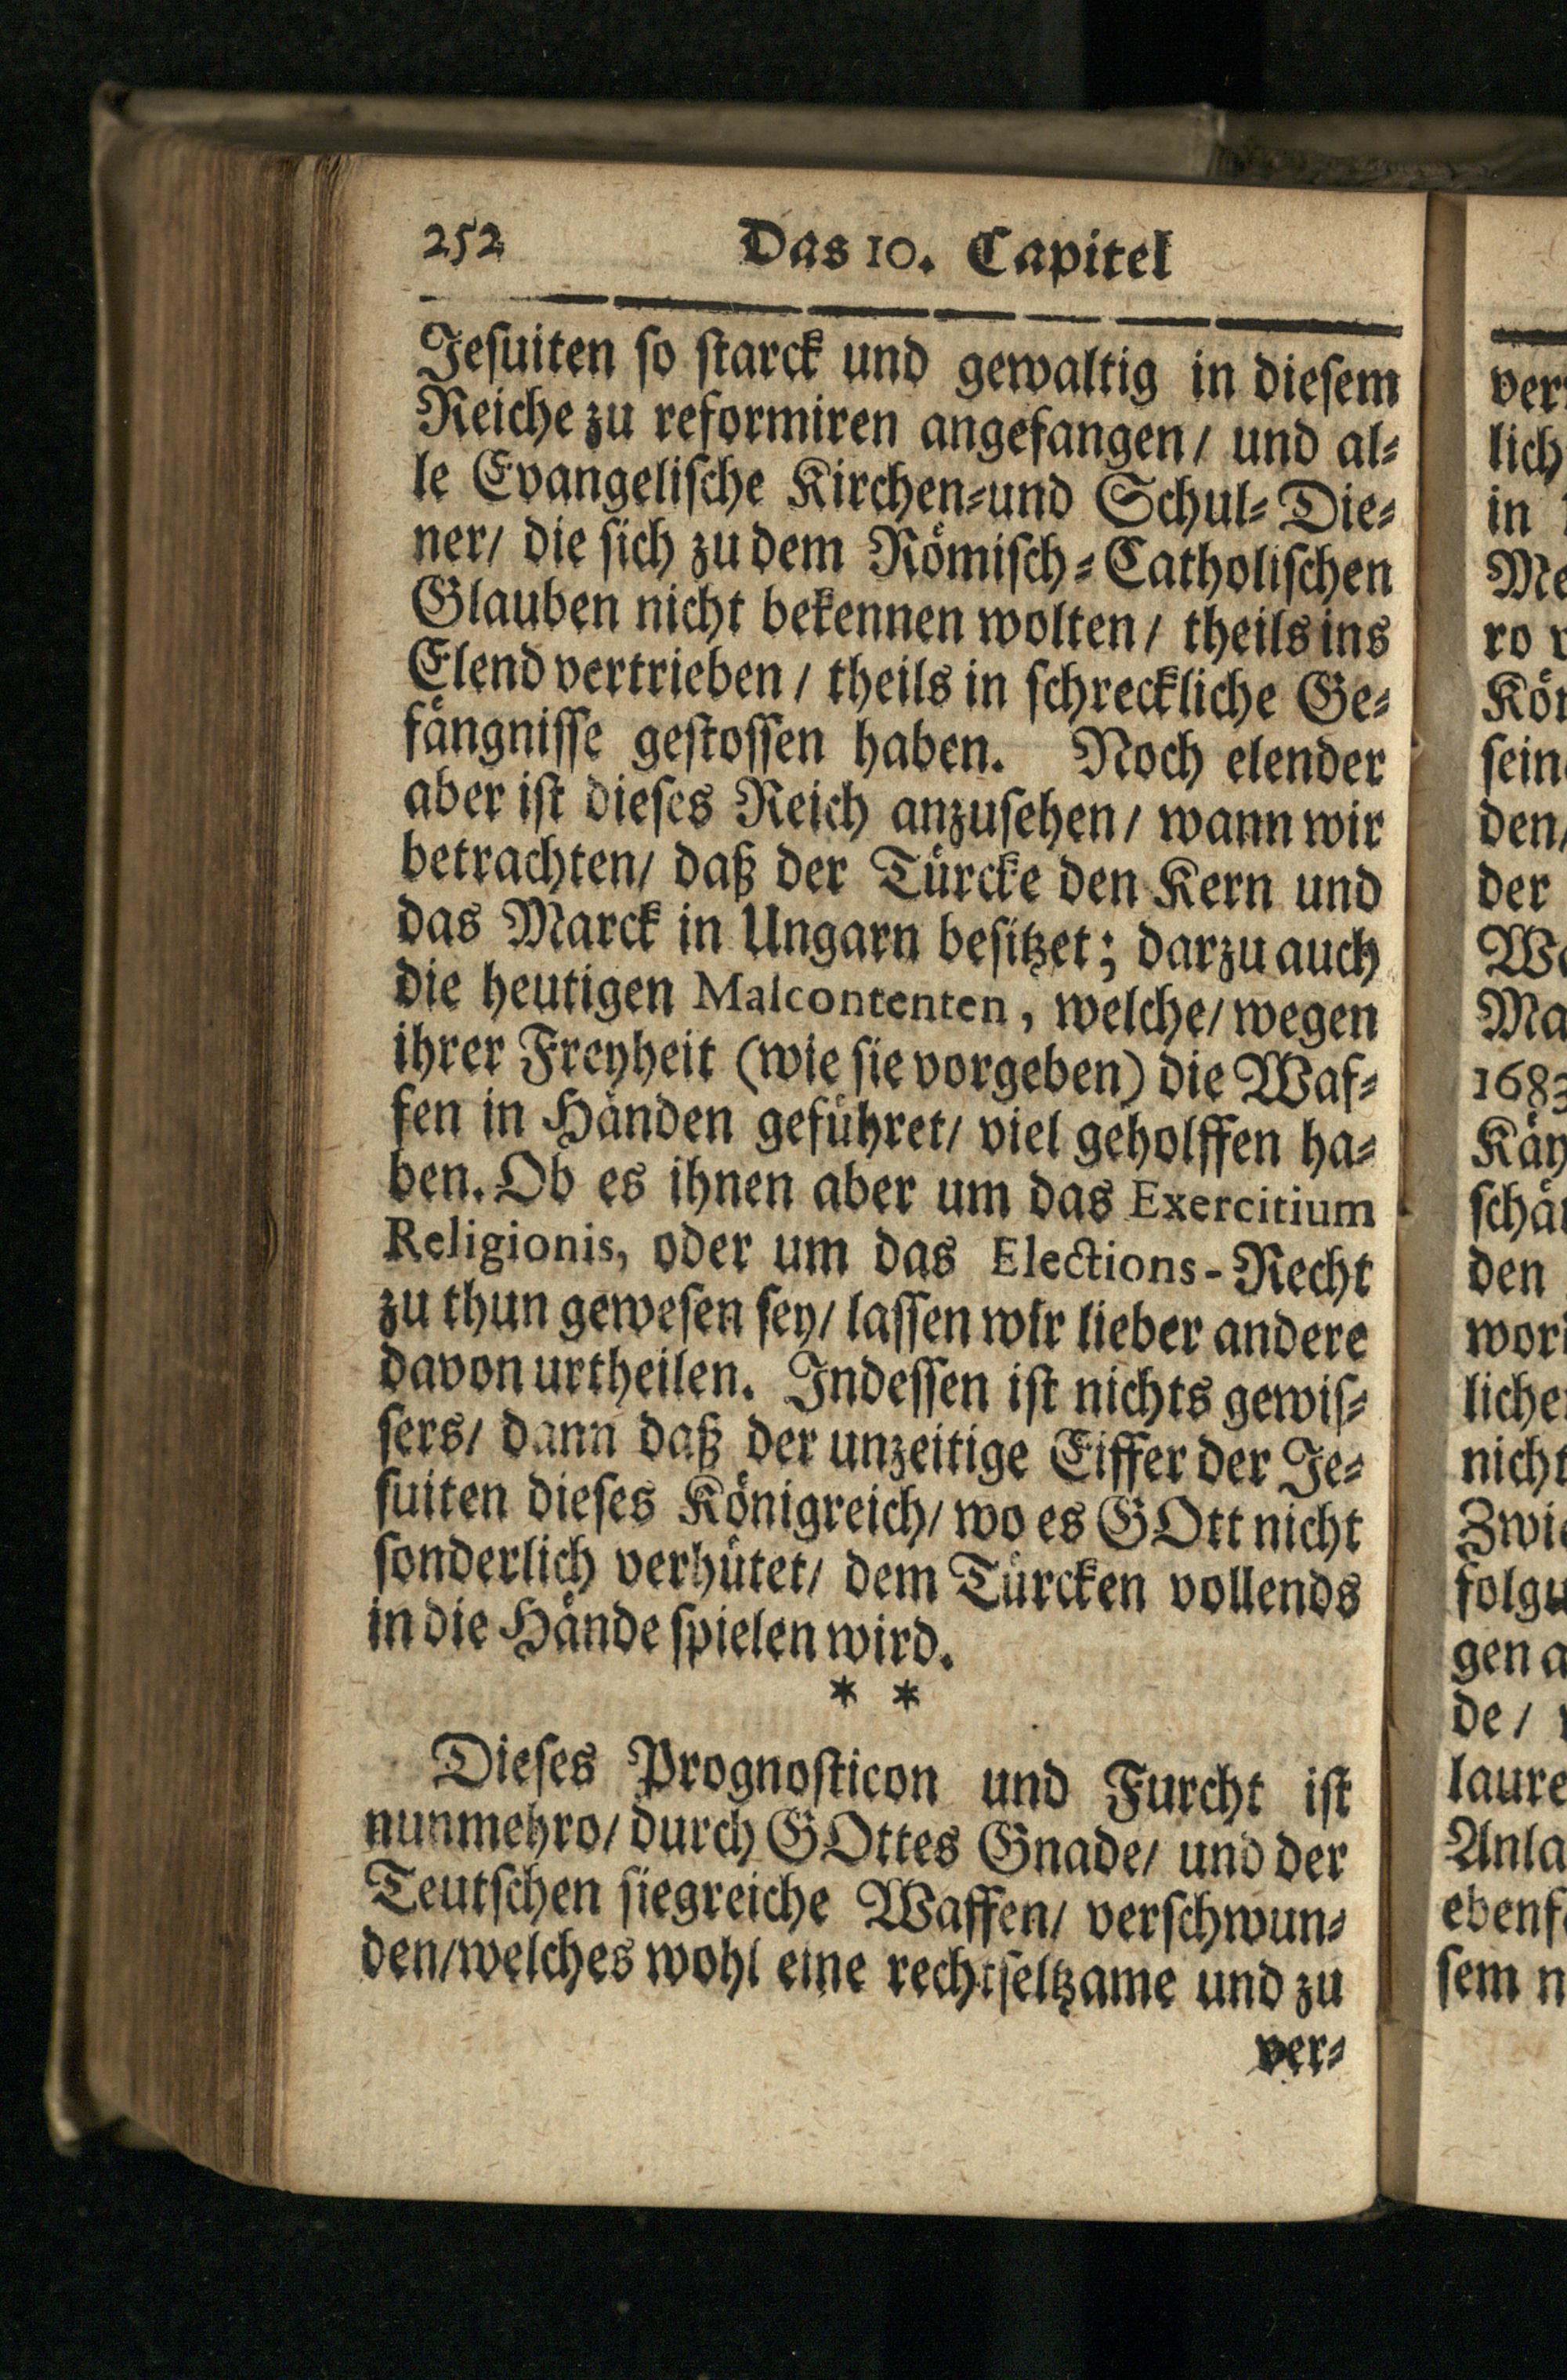 252 Das 10. Capitel
Jeſuiten ſo ſtarck und gewaltig in dieſem
Reiche zu reformiren angefangen/ und al⸗
le Evangeliſche Kirchen⸗und Schul⸗Die⸗
ner/ die ſich zu dem Roͤmiſch⸗Catholiſchen
Glauben nicht bekennen wolten/ theils ins
Elend vertrieben/ theils in ſchreckliche Ge⸗
faͤngniſſe geſtoſſen haben. Noch elender
aber iſt dieſes Reich anzuſehen/ wann wir
betrachten/ daß der Tuͤrcke den Kern und
das Marck in Ungarn beſitzet; darzu auch
die heutigen Malcontenten, welche/ wegen
ihrer Freyheit (wie ſie vorgeben) die Waf⸗
fen in Haͤnden gefuͤhret/ viel geholffen ha⸗
ben. Ob es ihnen aber um das Exercitium
Religionis, oder um das Elections-Recht
zu thun geweſen ſey/ laſſen wir lieber andere
davon urtheilen. Indeſſen iſt nichts gewiſ⸗
ſers/ dann daß der unzeitige Eiffer der Je⸗
ſuiten dieſes Koͤnigreich/ wo es GOtt nicht
ſonderlich verhuͤtet/ dem Tuͤrcken vollends
in die Haͤnde ſpielen wird.
* *
Dieſes Prognoſticon und Furcht iſt
nunmehro/ durch GOttes Gnade/ und der
Teutſchen ſiegreiche Waffen/ verſchwun⸗
den/welches wohl eine rechtſeltzame und zu
ver⸗